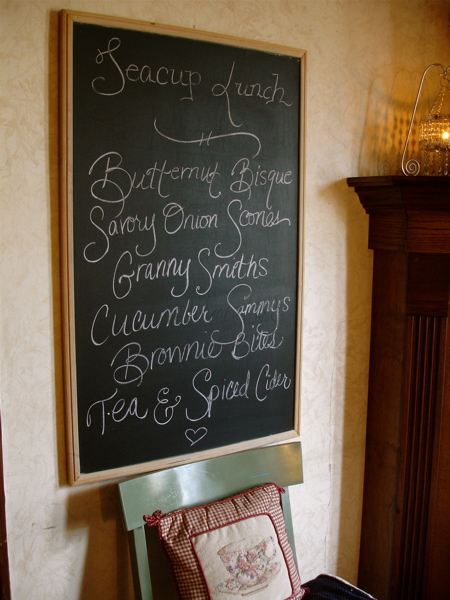 Teacup Lunch
Butternut Bisque
Savory Onion Scones
Granny Smiths
Cucumber Sammys
Brownie Bites
Tea & Spiced Cider